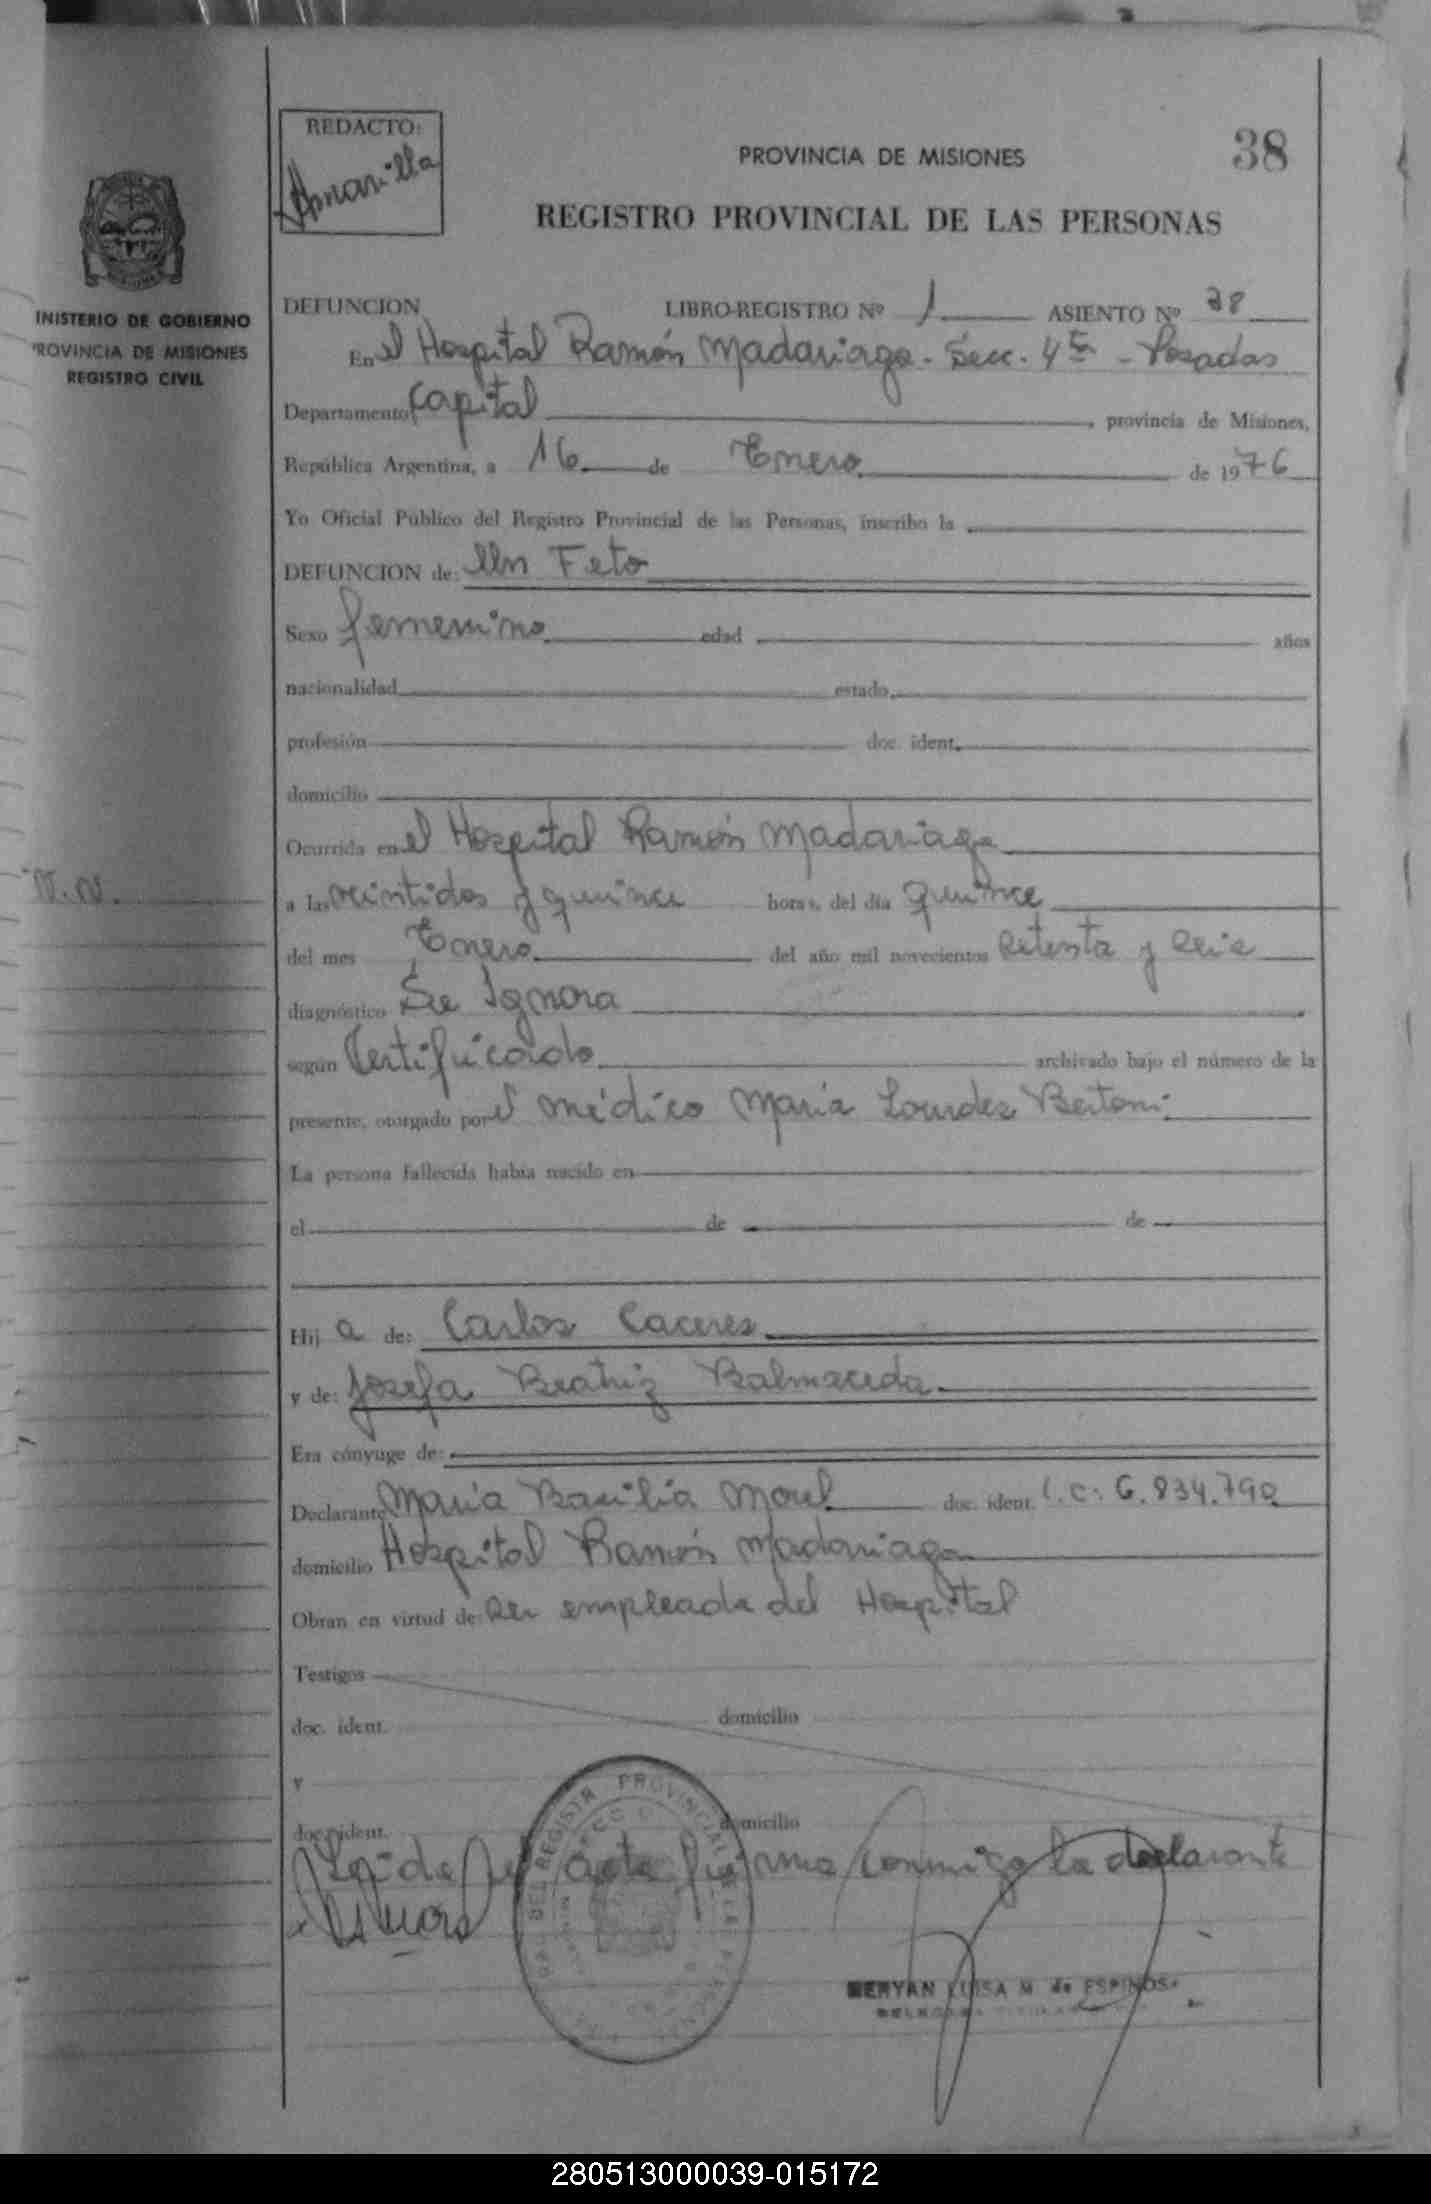 REDACTO:
Amarilla
PROVINCIA DE MISIONES
38
REGISTRO PROVINCIAL DE LAS PERSONAS
INISTERIO DE GOBIERNO
PROVINCIA DE MISIONES
REGISTRO CIVIL
DEFUNCION LIBRO-REGISTRO Nº 1 ASIENTO Nº 38
En el Hospital Ramón Madariaga - Secc. 4ta - Posadas
Departamento Capital, provincia de Misiones,
República Argentina, a 16 de Enero de 1976
Yo Oficial Público del Registro Provincial de las Personas, inscribo la
DEFUNCION de: Un Feto
Sexo femenino edad años
nacionalidad estado
profesión doc. ident.
domicilio
Ocurrida en el Hospital Ramón Madariaga
N.N.
a las veintidos y quince horas, del día quince
del mes Enero del año mil novecientos setenta y seis
diagnóstico Se Ignora
según Certificado archivado bajo el número de la
presente, otorgado por el médico María Lourdes Bertoni
La persona fallecida había nacido en
el de de
Hij a de: Carlos Caceres
y de: Josefa Beatriz Balmaceda
Era cónyuge de:
Declarante María Basilia Morel doc. ident. L.C: 6.834.790
domicilio Hospital Ramón Madariaga
Obran en virtud de: ser empleada del Hospital
Testigos
doc. ident. domicilio
y
doc. ident. domicilio
Leída el acta firma conmigo la declarante
MERYAN LUISA M. de ESPINOSA
280513000039-015172